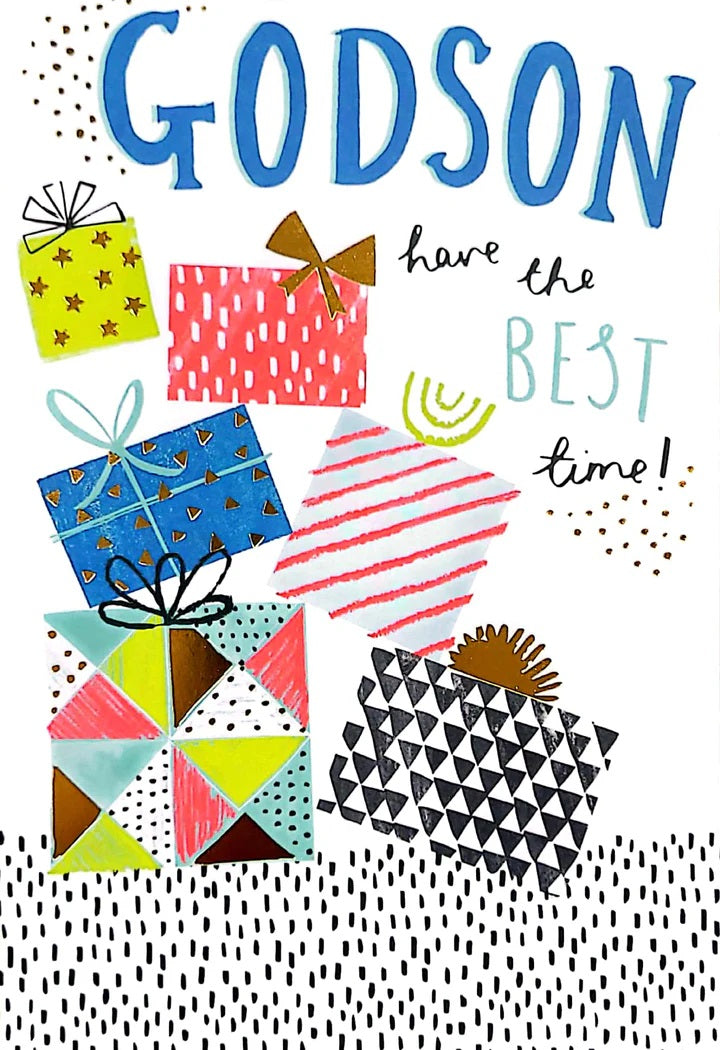 GODSON
have the
BEST
time!